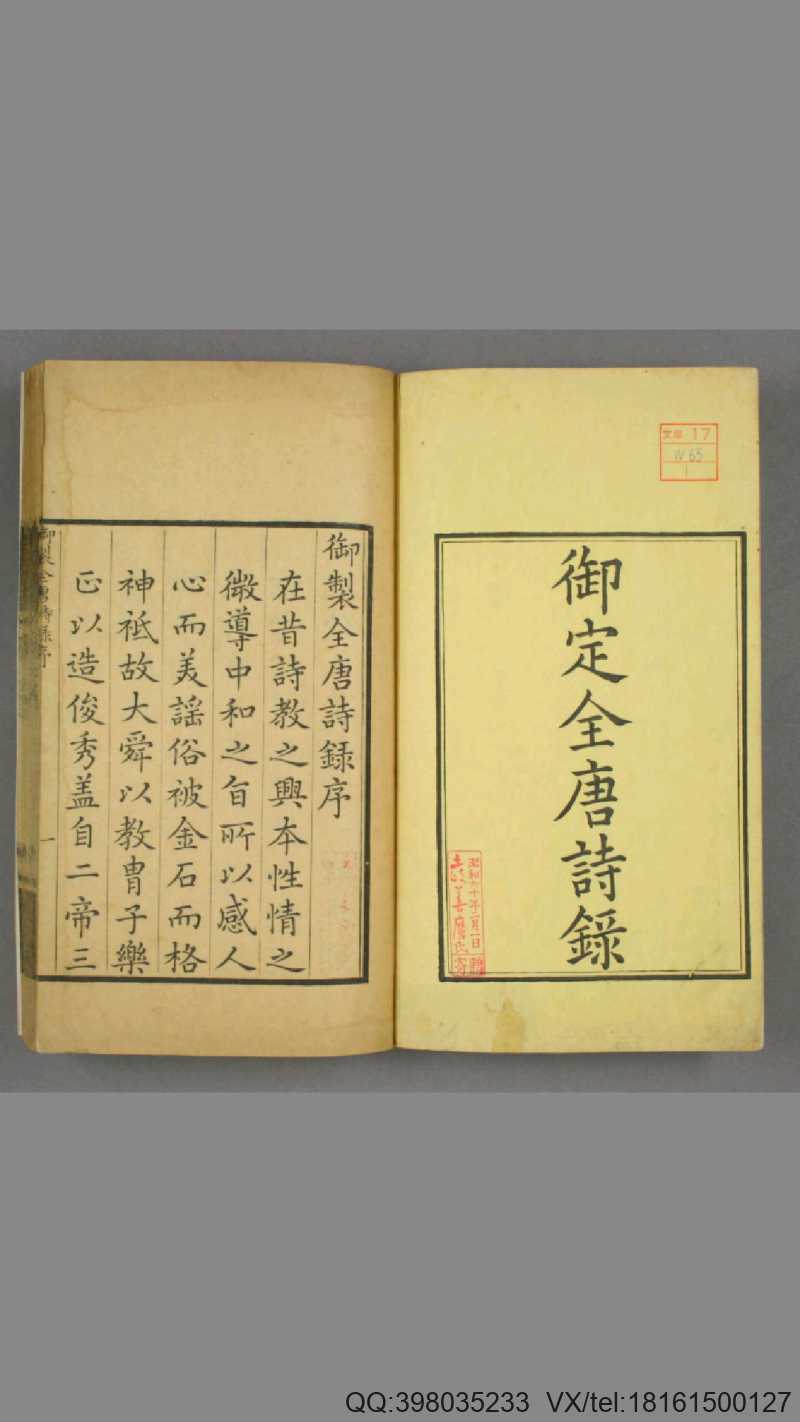 文庫 17
W 65
1
御定全唐詩錄
昭和六十年一月一日
御製全唐詩錄序
在昔詩教之興本性情之
微導中和之旨所以感人
心而美謡俗被金石而格
神祇故大舜以教胄子樂
正以造俊秀盖自二帝三
御製全唐詩錄序
一
QQ:398035233 VX/tel:18161500127